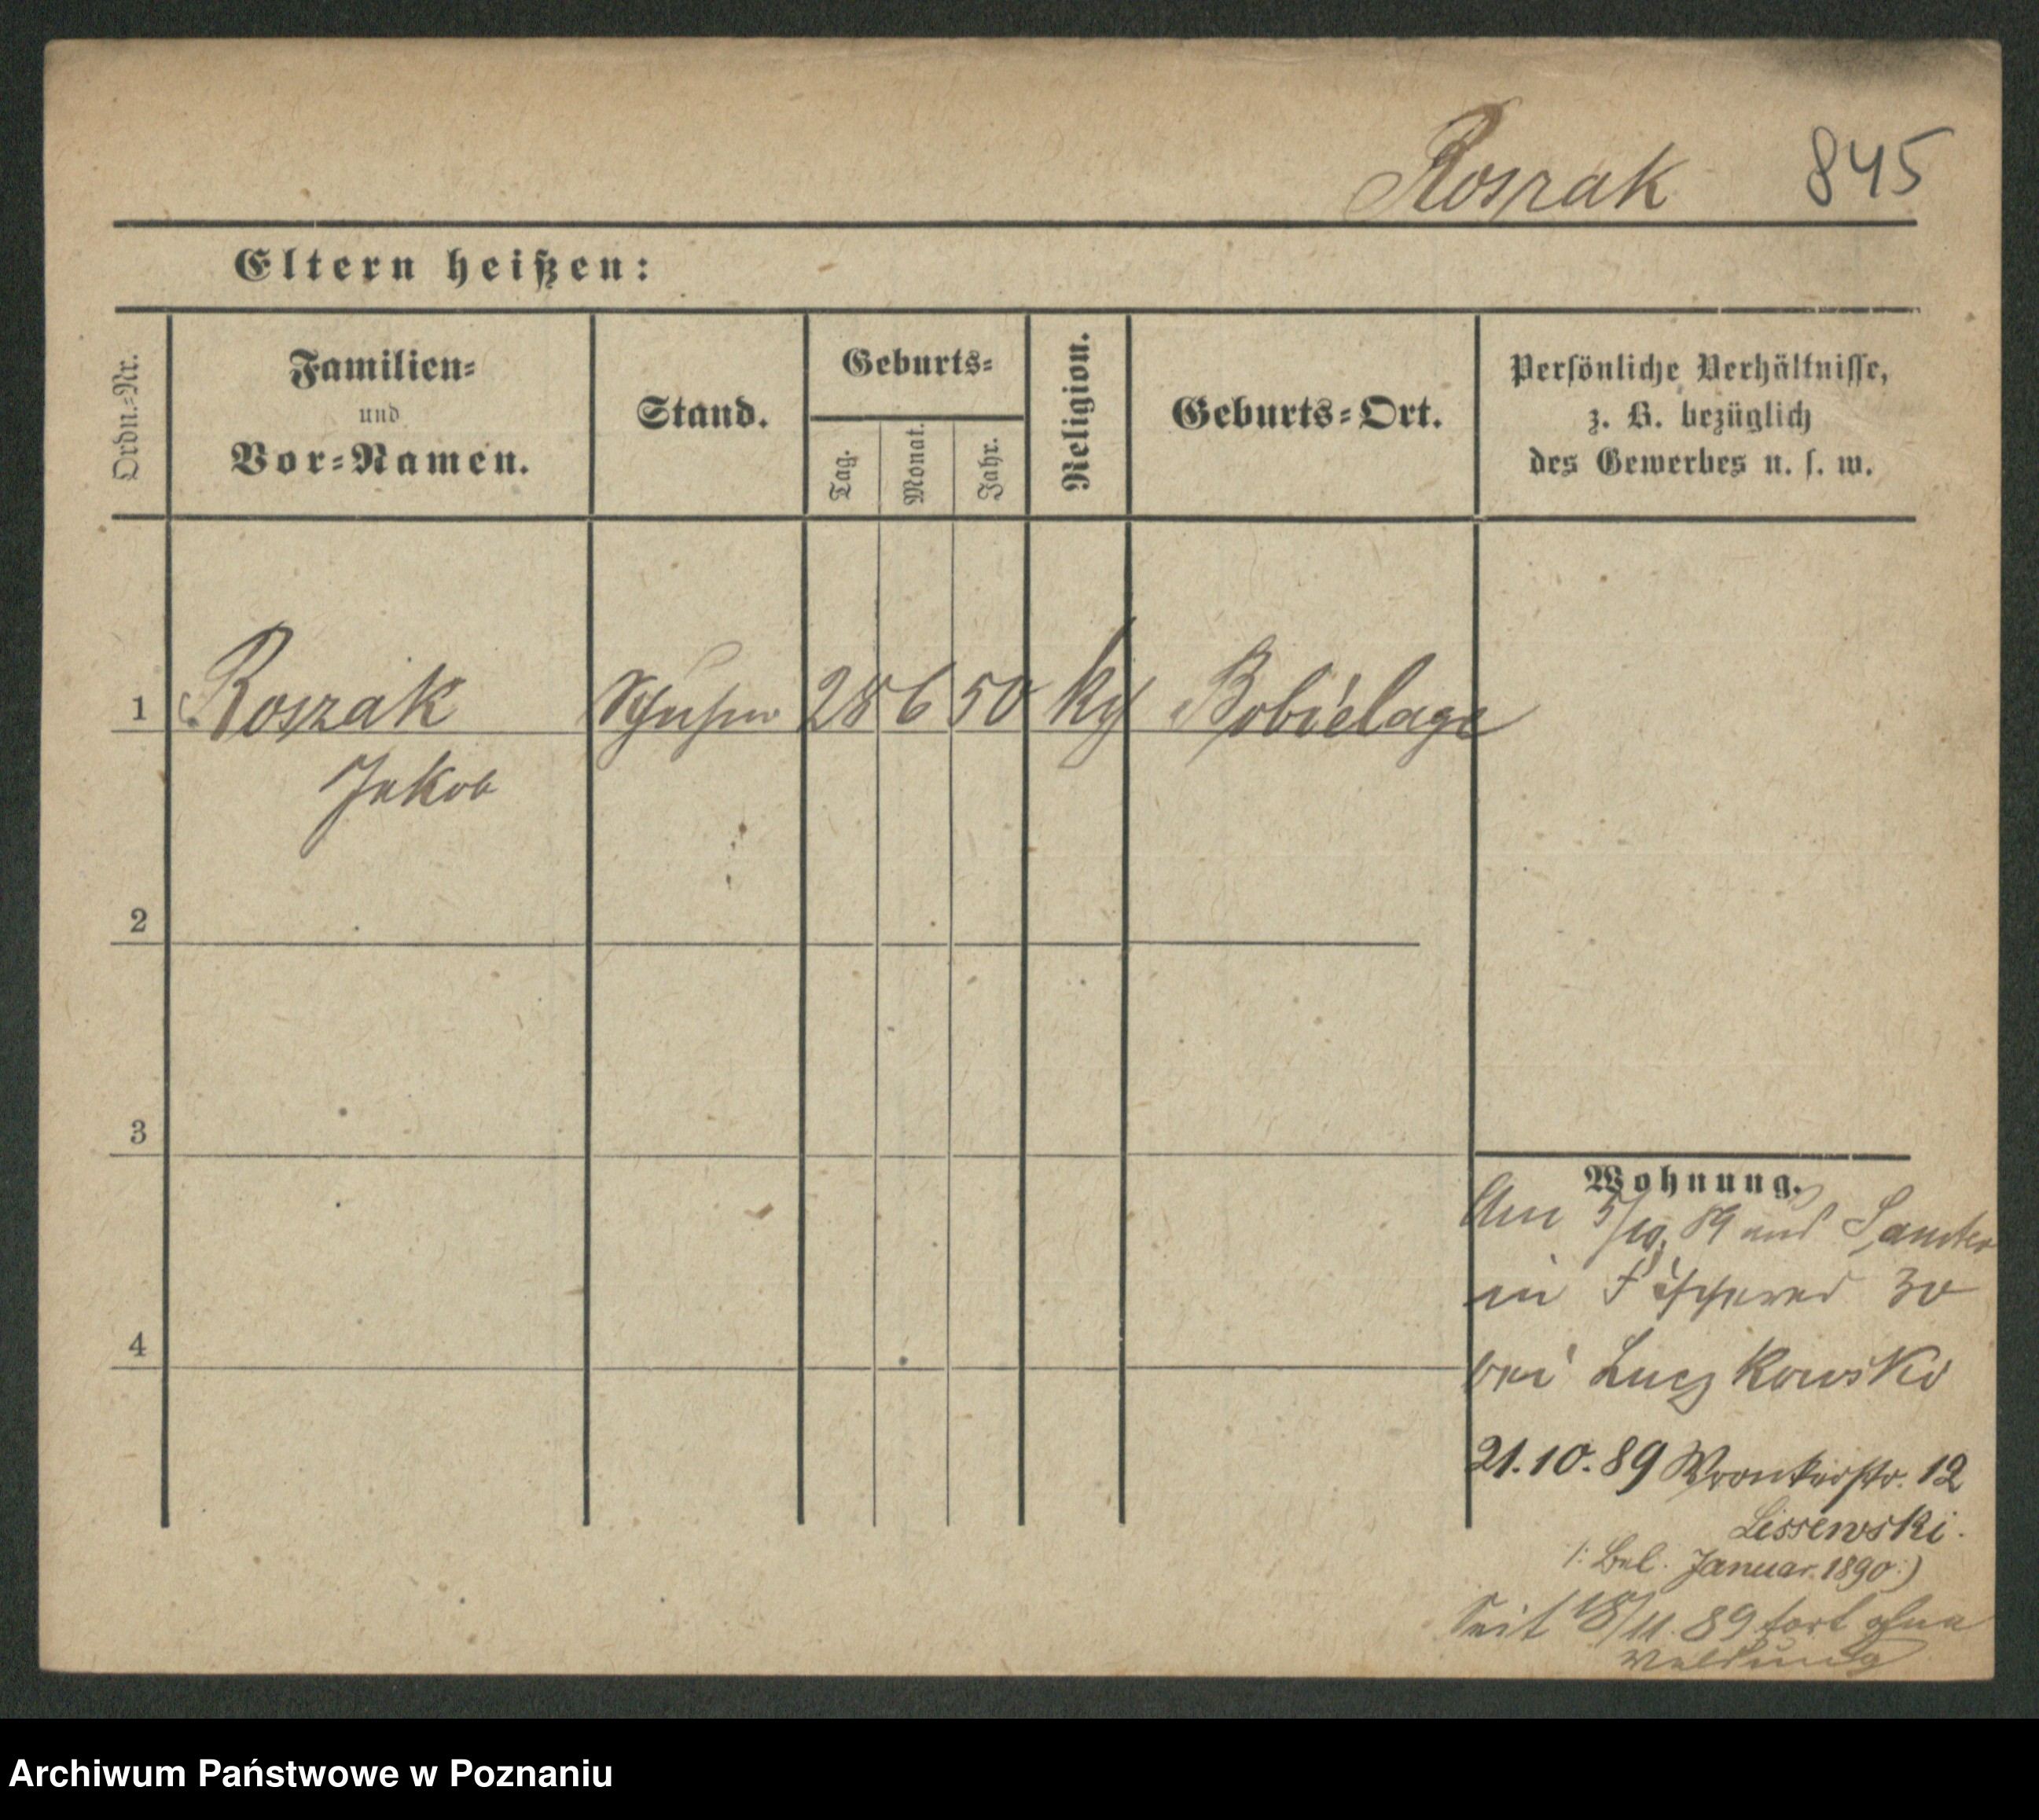 Roszak 845
Eltern heißen:
Ordn.-Nr.
Familien-
und
Vor-Namen.
Stand.
Geburts-
Tag.
Monat.
Jahr.
Religion.
Geburts-Ort.
Persönliche Verhältnisse,
z. B. bezüglich
des Gewerbes u. s. w.
1 Roszak 28 6 50 Bobielage
Jakob
2
3
4
Wohnung.
Am 5/10. 89 aus Samter
in Fischerei 30
bei Luczkowski
21.10.89 Wronkerstr. 12
Lissewski.
Januar 1890.)
Seit 18/11. 89 fort ohne
Meldung
Archiwum Państwowe w Poznaniu